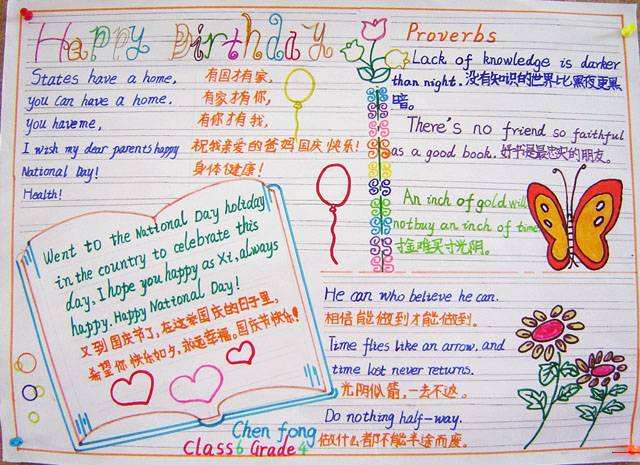 Happy Birthday
States have a home, 有国才有家,
you can have a home. 有家才有你,
you have me, 有你才有我,
I wish my dear parents happy 祝我亲爱的爸妈国庆快乐!
National Day! 身体健康!
Health!
Went to the National Day holiday
in the country to celebrate this
day, I hope you happy as Xi, always
happy. Happy National Day!
又到国庆节了,在这举国庆的日子里,
希望你快乐如夕,永远幸福。国庆节快乐!
Chen fong
Class6 Grade4
Proverbs
Lack of knowledge is darker
than night. 没有知识的世界比黑夜更黑
暗。
There's no friend so faithful
as a good book. 好书是最忠实的朋友。
An inch of gold will
not buy an inch of time
寸金难买寸光阴。
He can who believe he can.
相信能做到才能做到。
Time flies like an arrow, and
time lost never returns.
光阴似箭,一去不返。
Do nothing half-way.
做什么都不能半途而废。